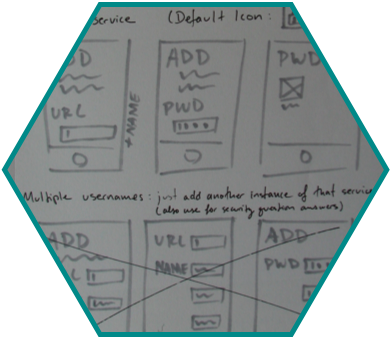 service (Default Icon:
ADD
PWD
URL
+ NAME
ADD
PWD
Multiple usernames: just add another instance of that service
(also use for security question answers)
ADD
URL
NAME
ADD
PWD